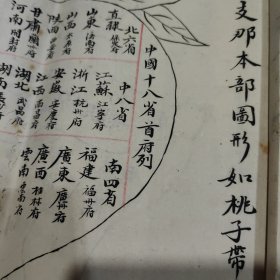 支那本部圖形如桃子帶
中國十八省首府列
北六省
直隸 保定府
山東 濟南府
山西 太原府
陝西 西安府
甘肅 蘭州府
河南 開封府
中八省
江蘇 江寧府
浙江 杭州府
安徽 安慶府
江西 南昌府
湖北 武昌府
湖南
南四省
福建 福州府
廣東 廣州府
廣西 桂林府
雲南 雲南府